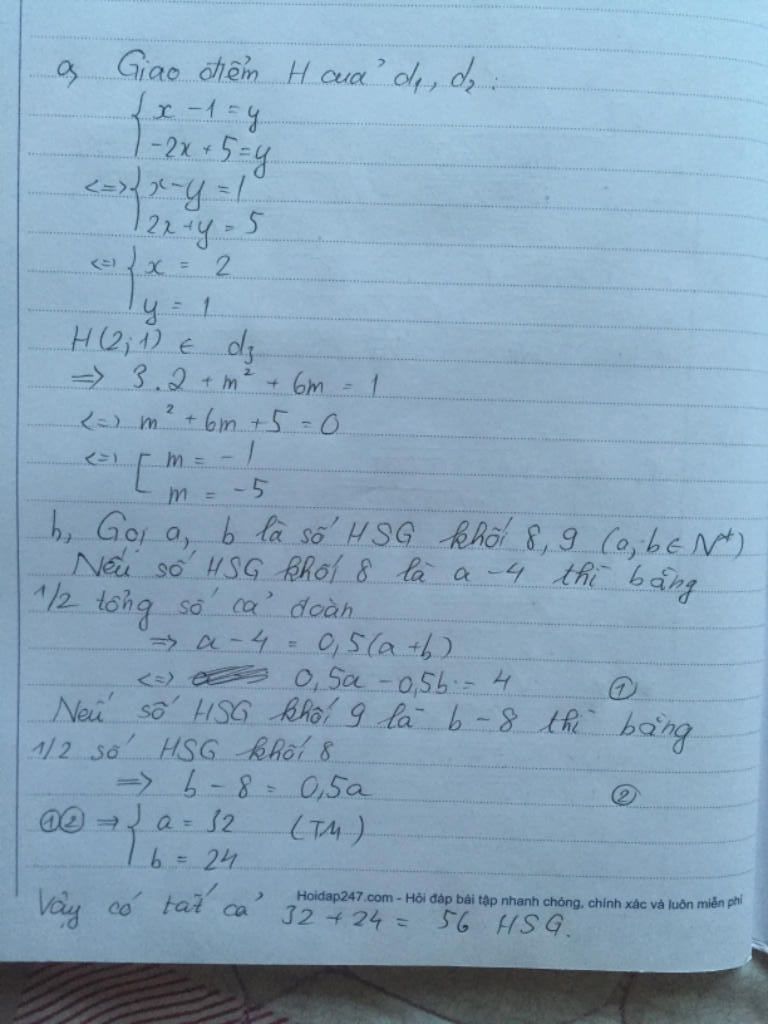 a, Giao điểm H của d1, d2:
x - 1 = y
-2x + 5 = y
<=> x - y = 1
2x + y = 5
<=> x = 2
y = 1
H(2;1) ∈ d3
=> 3.2 + m² + 6m = 1
<=> m² + 6m + 5 = 0
<=> [ m = -1
m = -5
b, Gọi a, b là số HSG khối 8, 9 (a, b ∈ N*)
Nếu số HSG khối 8 là a - 4 thì bằng
1/2 tổng số cả đoàn
=> a - 4 = 0,5(a + b)
<=> 0,5a - 0,5b = 4 ①
Nếu số HSG khối 9 là b - 8 thì bằng
1/2 số HSG khối 8
=> b - 8 = 0,5a ②
①② => { a = 32 (TM)
b = 24
Hoidap247.com - Hỏi đáp bài tập nhanh chóng, chính xác và luôn miễn phí
Vậy có tất cả 32 + 24 = 56 HSG.